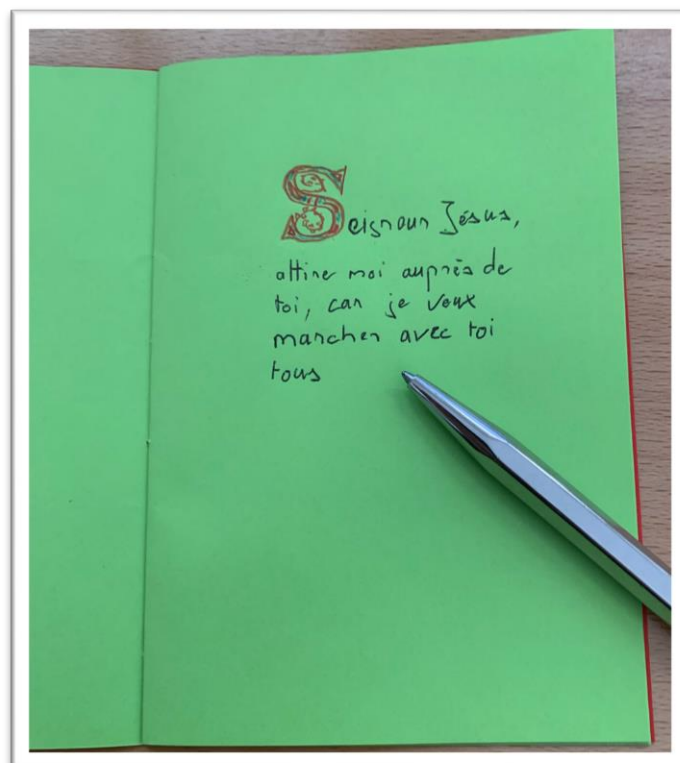 Seigneur Jésus,
attire moi auprès de
toi, car je veux
marcher avec toi
tous